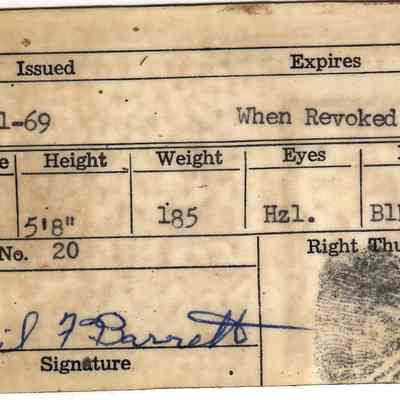 Issued Expires
1-69 When Revoked
Height Weight Eyes
5'8" 185 Hzl.
No. 20 Right Thu
F Barrett
Signature